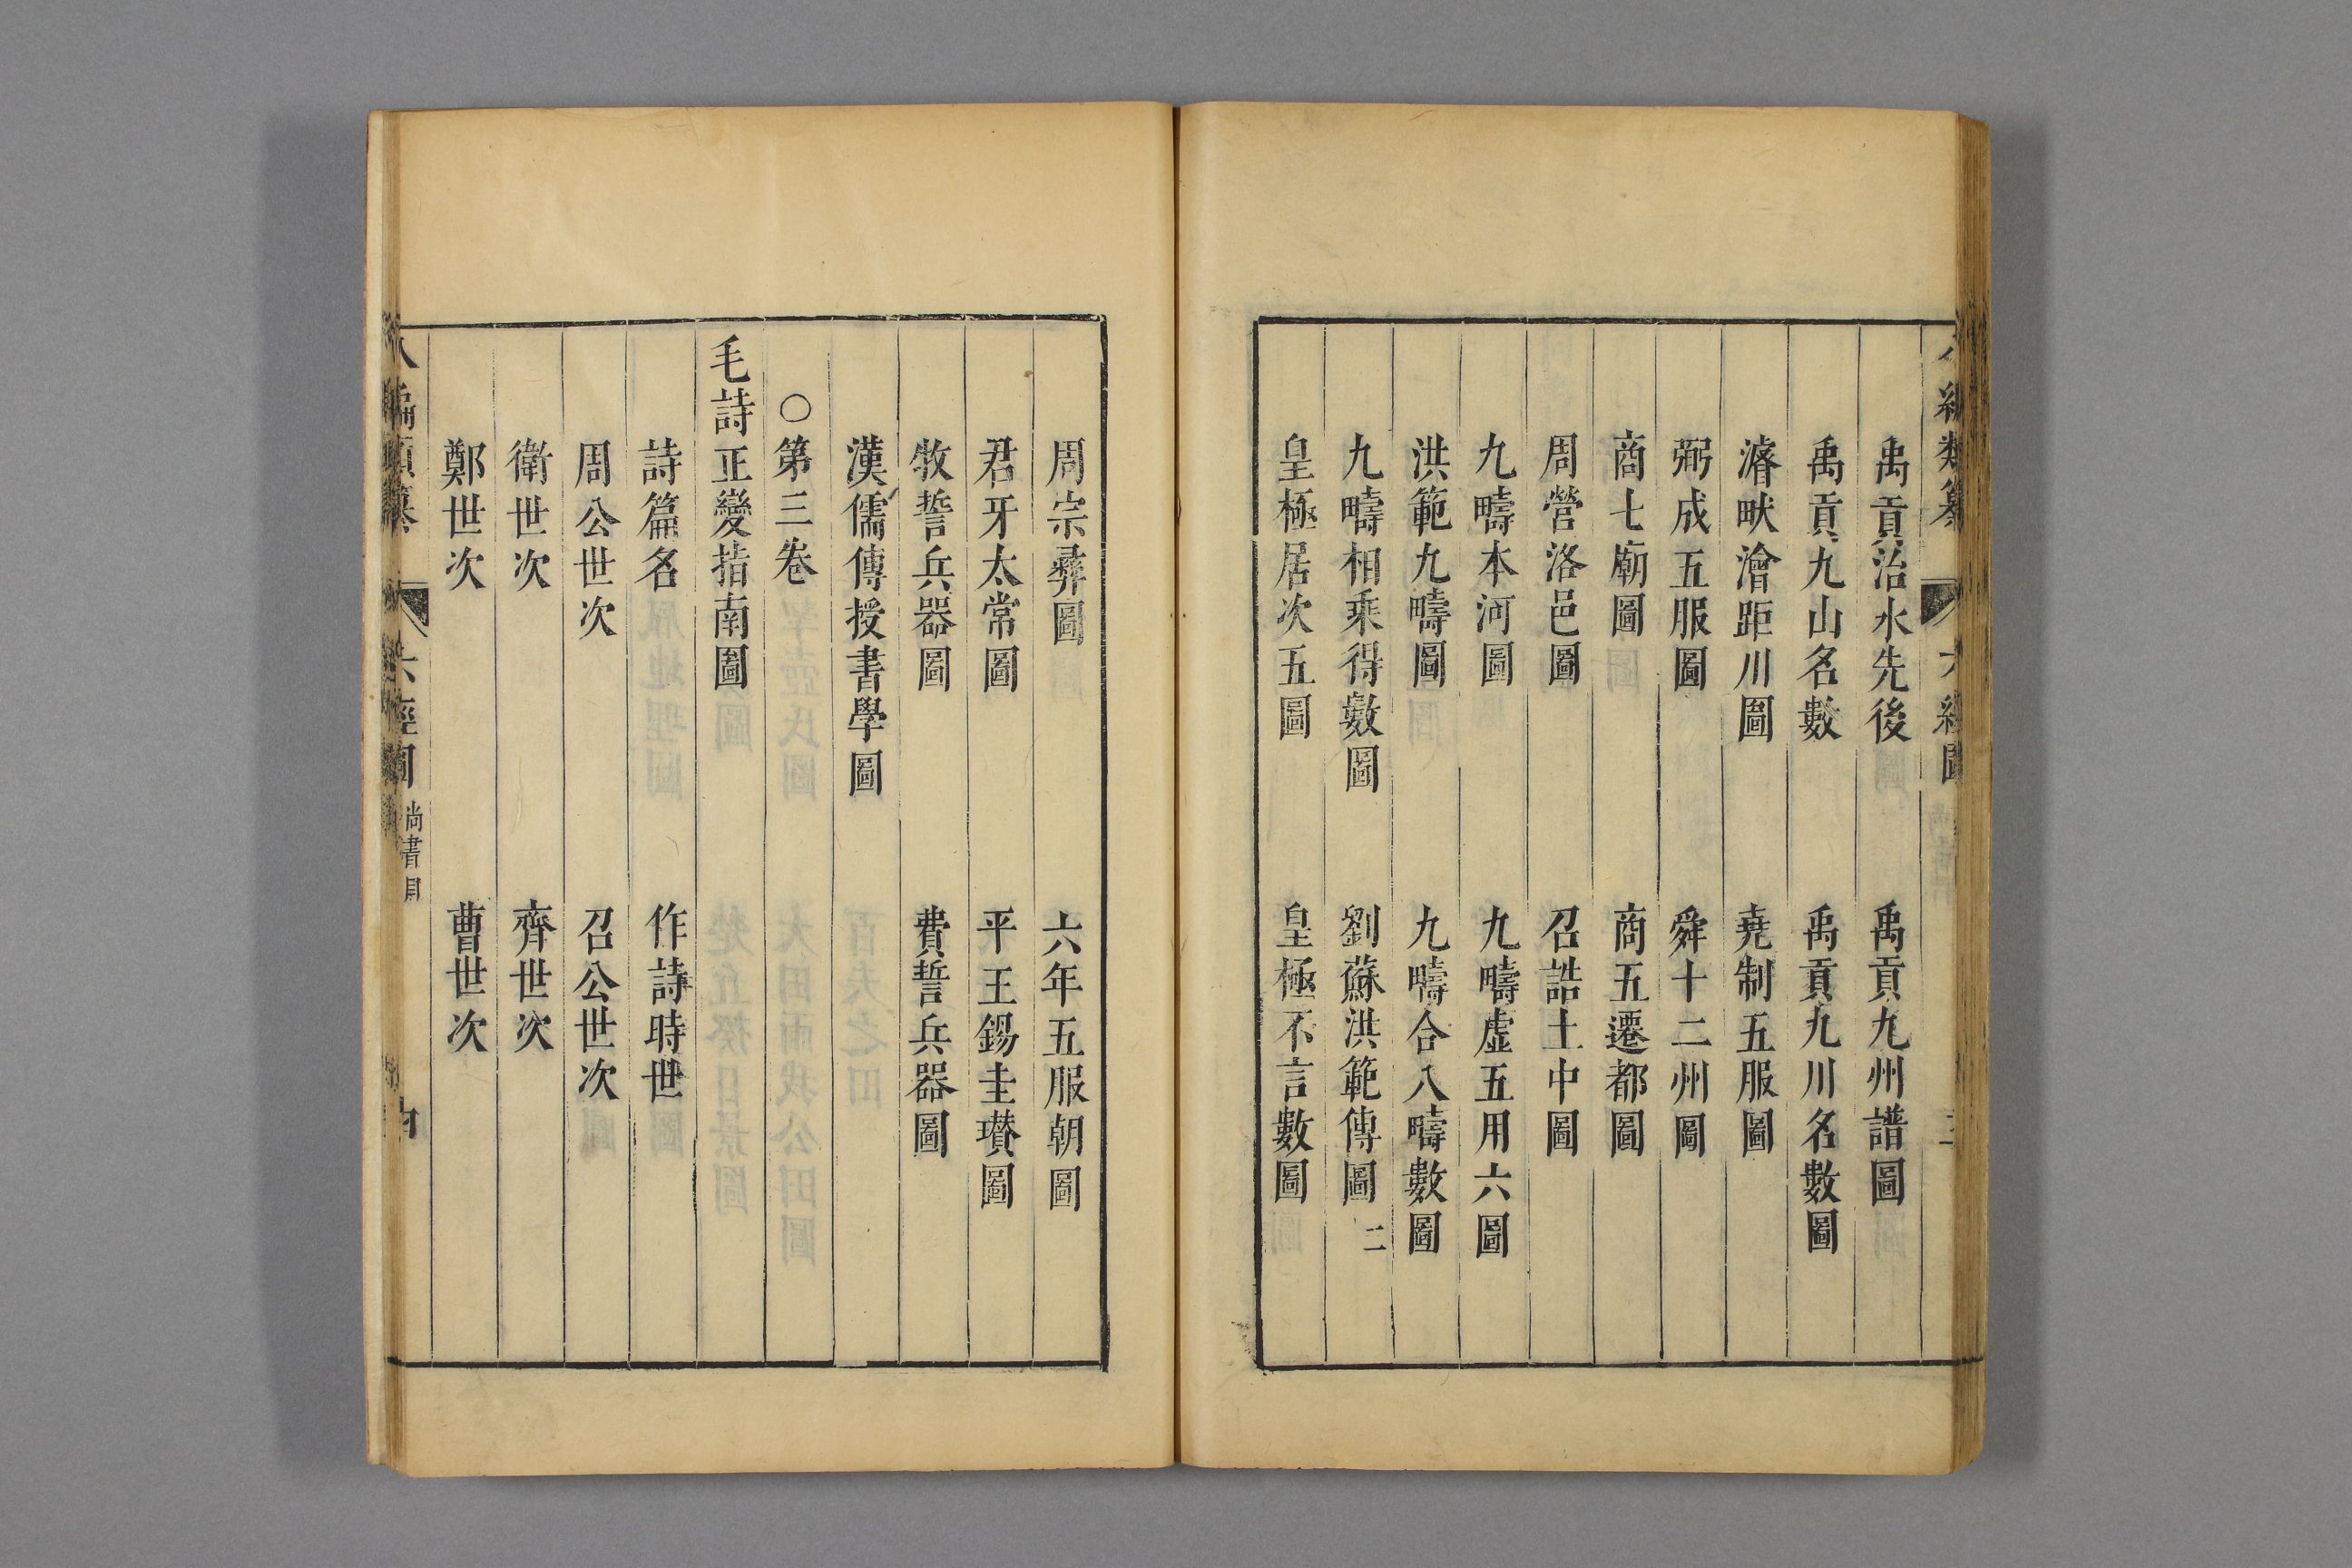 禹貢治水先後　禹貢九州譜圖
禹貢九山名數　禹貢九川名數圖
濬畎澮距川圖　堯制五服圖
弼成五服圖　舜十二州圖
商七廟圖　商五遷都圖
周營洛邑圖　召誥土中圖
九疇本河圖　九疇虛五用六圖
洪範九疇圖　九疇合八疇數圖
九疇相乘得數圖　劉蘇洪範傳圖二
皇極居次五圖　皇極不言數圖
周宗彝圖　六年五服朝圖
君牙太常圖　平王錫圭瓚圖
牧誓兵器圖　費誓兵器圖
漢儒傳授書學圖
○第三卷
毛詩正變指南圖
詩篇名　作詩時世
周公世次　召公世次
衛世次　齊世次
鄭世次　曹世次
八編類纂　六經圖　尚書目